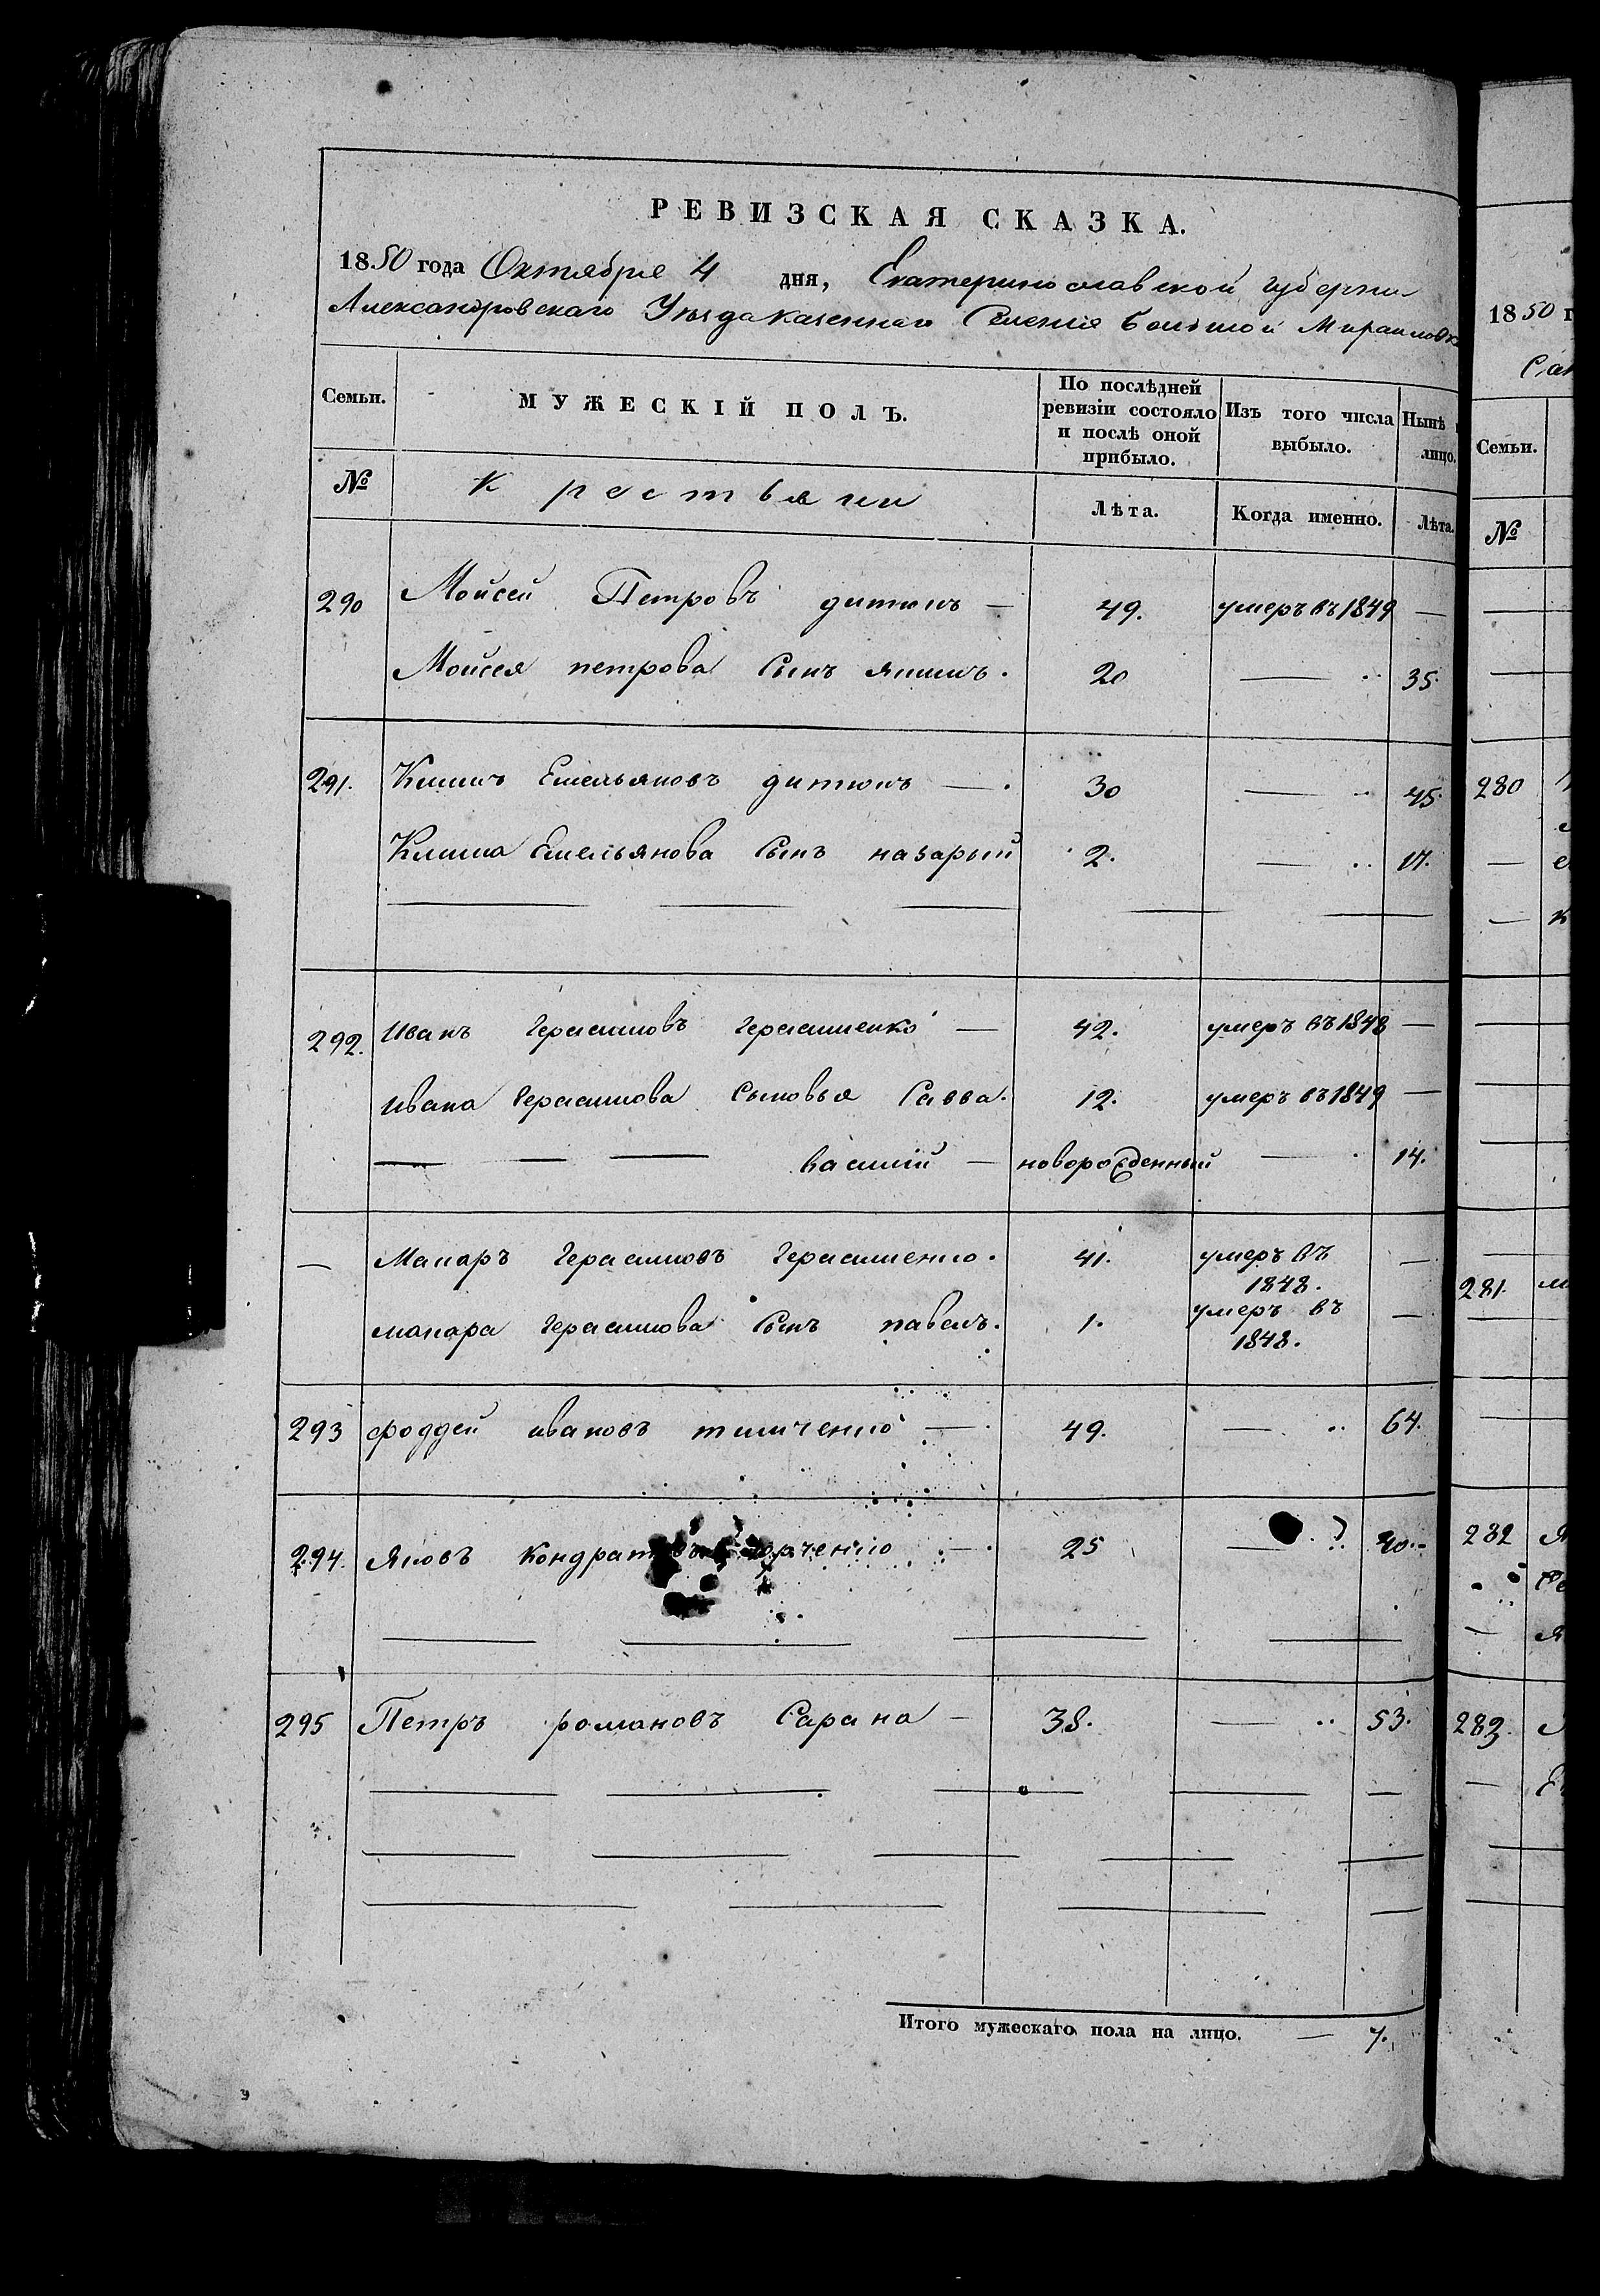 РЕВИЗСКАЯ СКАЗКА.
1850 года Октября 4 дня, Екатеринославской губерни
Александровскаго Уѣзда казеннаго Селенія большой Михайловк
Семьи. МУЖЕСКІЙ ПОЛЪ. По послѣдней ревизіи состояло и послѣ оной прибыло. Изъ того числа выбыло. Нынѣ лицо.
№ Крестьяни Лѣта. Когда именно. Лѣта.
290 Мойсей Петровъ дитюкъ — 49. умеръ въ 1849 —
Мойсея петрова Сынъ якимъ. 20 — 35.
291. Климъ Емельяновъ дитюкъ — 30 — 45.
Клима Емельянова Сынъ назарый 2. — 17.
292. Иванъ Герасимовъ Герасименко — 42. умеръ въ 1848 —
Ивана Герасимова Сыновья Савва. 12. умеръ въ 1849 —
— — — василій — новорожденный — 14.
— Макаръ Герасимовъ Герасименко. 41. умеръ въ 1848. —
макара Герасимова Сынъ павелъ. 1. умеръ въ 1848. —
293 фоддей ивановъ тимченко — 49. — 64.
294. Яковъ Кондратовъ — 25 — 40.
295 Петръ романовъ Сарана — 38. — 53.
Итого мужескаго пола на лицо. — 7.
1850 г
Семьи.
№
280
281.
282
283.